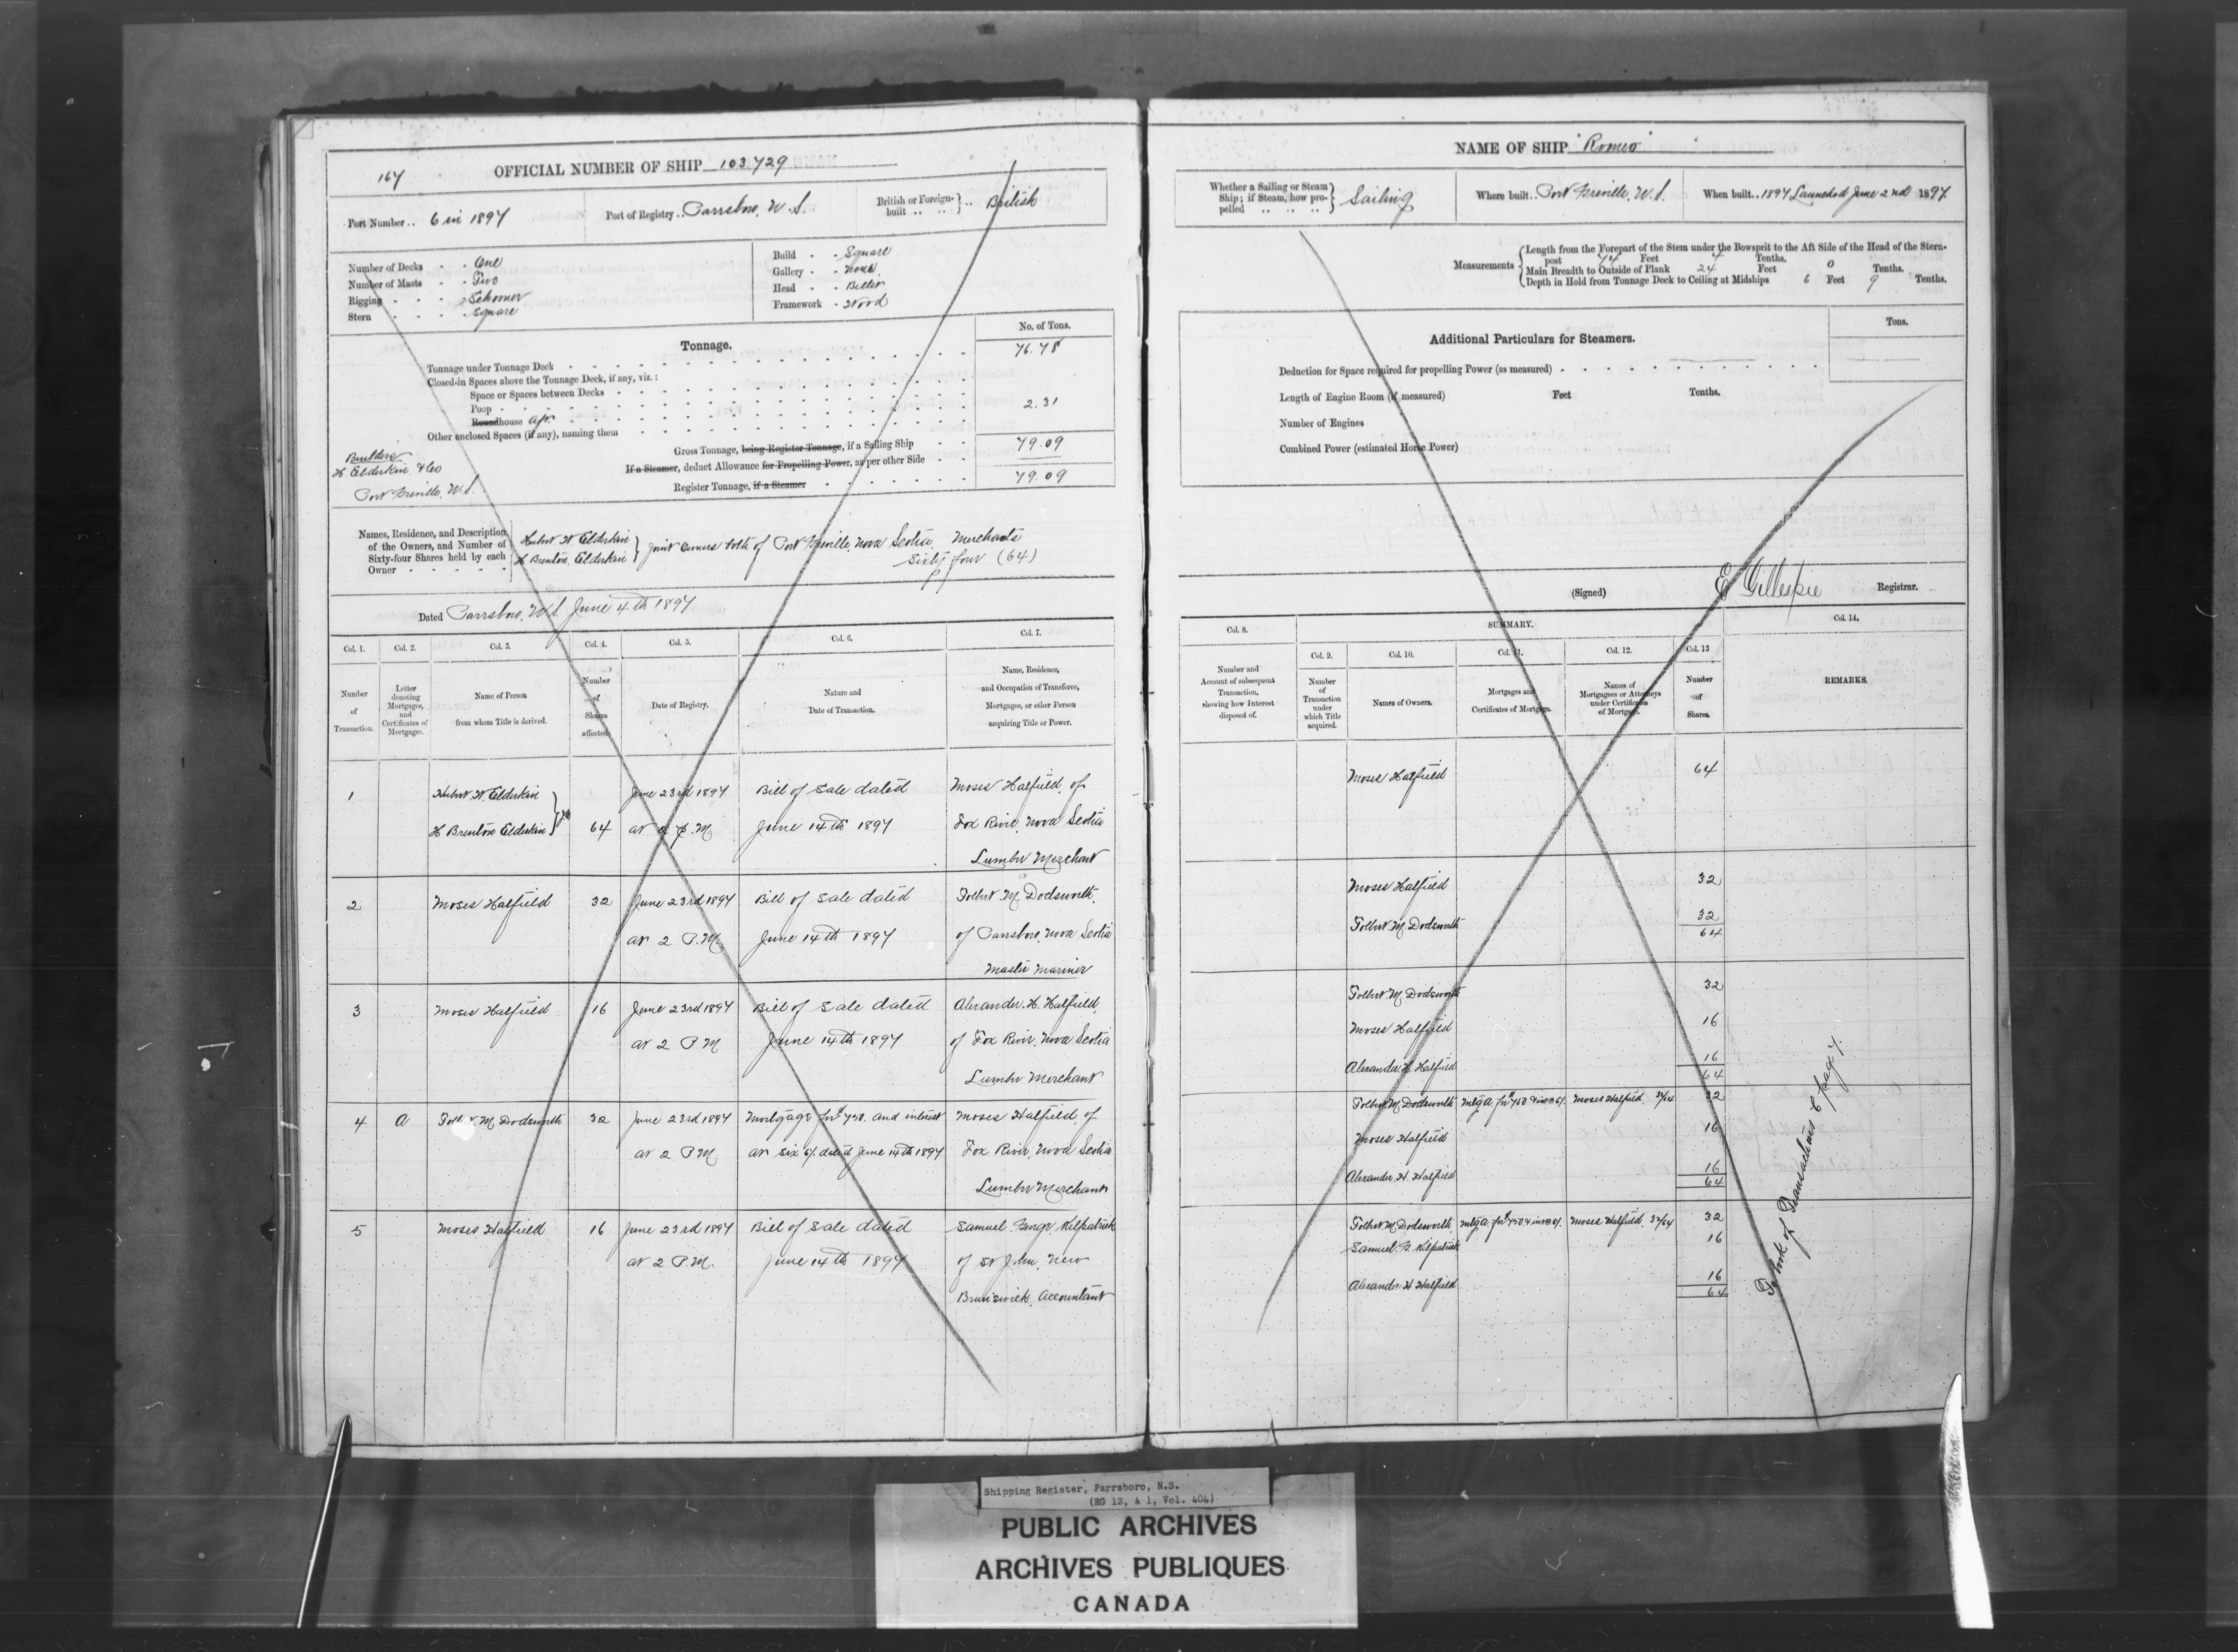 167
OFFICIAL NUMBER OF SHIP 103.729
Port Number .. 6 in 1897
Port of Registry .. Parrsboro, N.S.
British or Foreign-built .. .. } .. British
Number of Decks - - One
Number of Masts - - Two
Rigging - - - Schooner
Stern - - - square
Build - - Square
Gallery - - None
Head - - Billet
Framework - Wood
Tonnage.
No. of Tons.
Tonnage under Tonnage Deck 76.78
Closed-in Spaces above the Tonnage Deck, if any, viz.:
Space or Spaces between Decks
Poop
Roundhouse aft 2.31
Other enclosed Spaces (if any), naming them
Gross Tonnage, being Register Tonnage, if a Sailing Ship 79.09
If a Steamer, deduct Allowance for Propelling Power, as per other Side
Register Tonnage, if a Steamer 79.09
Builders
H Elderkin & Co
Port Greville, N.S.
Names, Residence, and Description of the Owners, and Number of Sixty-four Shares held by each Owner
Hubert W Elderkin
H Brenton Elderkin } Joint Owners both of Port Greville, Nova Scotia, Merchants
Sixty four (64)
Dated Parrsboro, N.S. June 4th 1897
Col. 1. Col. 2. Col. 3. Col. 4. Col. 5. Col. 6. Col. 7.
Number of Transaction.
Letter denoting Mortgages, and Certificates of Mortgages.
Name of Person from whom Title is derived.
Number of Shares affected.
Date of Registry.
Nature and Date of Transaction.
Name, Residence, and Occupation of Transferee, Mortgagee, or other Person acquiring Title or Power.
1 Hubert W. Elderkin June 23rd 1897 Bill of Sale dated Moses Hatfield, of
H Brenton Elderkin } 64 at 2 P.M June 14th 1897 Fox River, Nova Scotia
Lumber Merchant
2 Moses Hatfield 32 June 23rd 1897 Bill of Sale dated Tolbert M. Dodsworth,
at 2 P.M. June 14th 1897 of Parrsboro, Nova Scotia
Master Mariner
3 Moses Hatfield 16 June 23rd 1897 Bill of Sale dated Alexander. H. Hatfield,
at 2 P M June 14th 1897 of Fox River, Nova Scotia
Lumber Merchant
4 A Tolbert M Dodsworth 32 June 23rd 1897 Mortgage for $750. and interest Moses Hatfield, of
at 2 P M at six %. dated June 14th 1897 Fox River, Nova Scotia
Lumber Merchant
5 Moses Hatfield 16 June 23rd 1897 Bill of Sale dated Samuel George Kilpatrick
at 2 P.M. June 14th 1897 of St John, New
Brunswick, Accountant
NAME OF SHIP "Romeo"
Whether a Sailing or Steam Ship; if Steam, how propelled .. .. .. } Sailing
Where built .. Port Greville, N.S.
When built .. 1897 Launched June 2nd 1897.
Measurements
Length from the Forepart of the Stem under the Bowsprit to the Aft Side of the Head of the Stern-
post 74 Feet 7 Tenths.
Main Breadth to Outside of Plank 24 Feet 0 Tenths.
Depth in Hold from Tonnage Deck to Ceiling at Midships 6 Feet 9 Tenths.
Additional Particulars for Steamers.
Tons.
Deduction for Space required for propelling Power (as measured)
Length of Engine Room (if measured) Feet Tenths.
Number of Engines
Combined Power (estimated Horse Power)
(Signed) E Gillespie Registrar.
Col. 8. SUMMARY. Col. 14.
Col. 9. Col. 10. Col. 11. Col. 12. Col. 13
Number and Account of subsequent Transaction, showing how Interest disposed of.
Number of Transaction under which Title acquired.
Names of Owners.
Mortgages and Certificates of Mortgage.
Names of Mortgagees or Attorneys under Certificates of Mortgage.
Number of Shares.
REMARKS.
Moses Hatfield 64
Moses Hatfield 32
Tolbert M. Dodsworth 32
64
Tolbert M Dodsworth 32
Moses Hatfield 16
Alexander H Hatfield 16
64
Tolbert M. Dodsworth Mtg A. for $750 & int @ 6%. Moses Hatfield. 32/64 32
Moses Hatfield 16
Alexander H Hatfield 16
64
Tolbert M. Dodsworth Mtg A. for $750 & int @ 6%. Moses Hatfield. 32/64 32
Samuel G Kilpatrick 16
Alexander H Hatfield 16
64
To book of Transactions page 7.
Shipping Register, Parrsboro, N.S.
(RG 12, A 1, Vol. 404)
PUBLIC ARCHIVES
ARCHIVES PUBLIQUES
CANADA